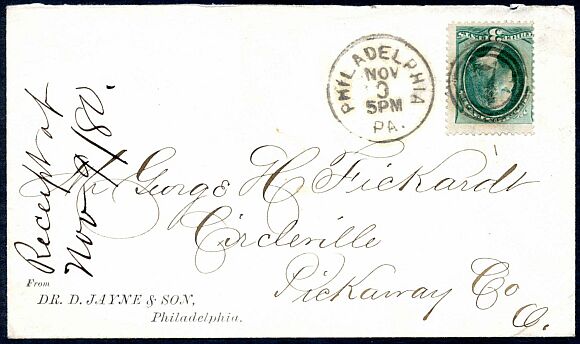 PHILADELPHIA
NOV
3
5PM
PA.
3
Receipt at
Nov 9/80.
Mr George H Fickardt
Circleville
Pickaway Co
O.
From
DR. D. JAYNE & SON,
Philadelphia.